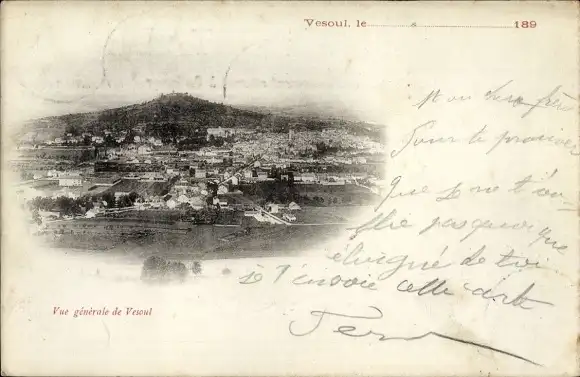 Vesoul, le 189
Mon cher frère
Pour te prouver
que je ne t'ou
blie pas quoique
éloigné de toi
je t'envoie cette carte
Vue générale de Vesoul